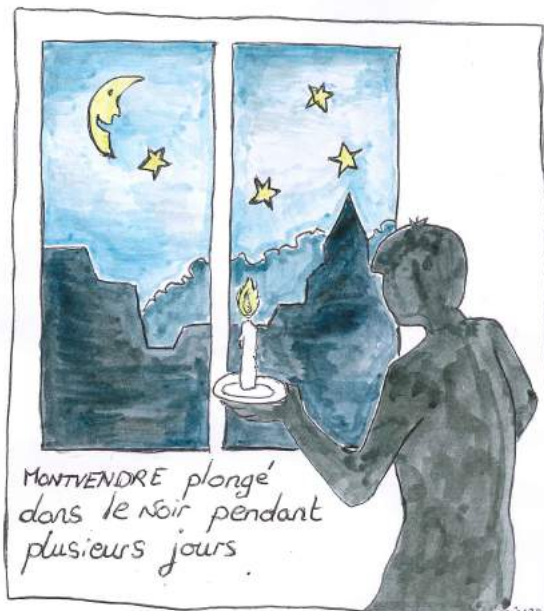 MONTVENDRE plongé
dans le Noir pendant
plusieurs jours